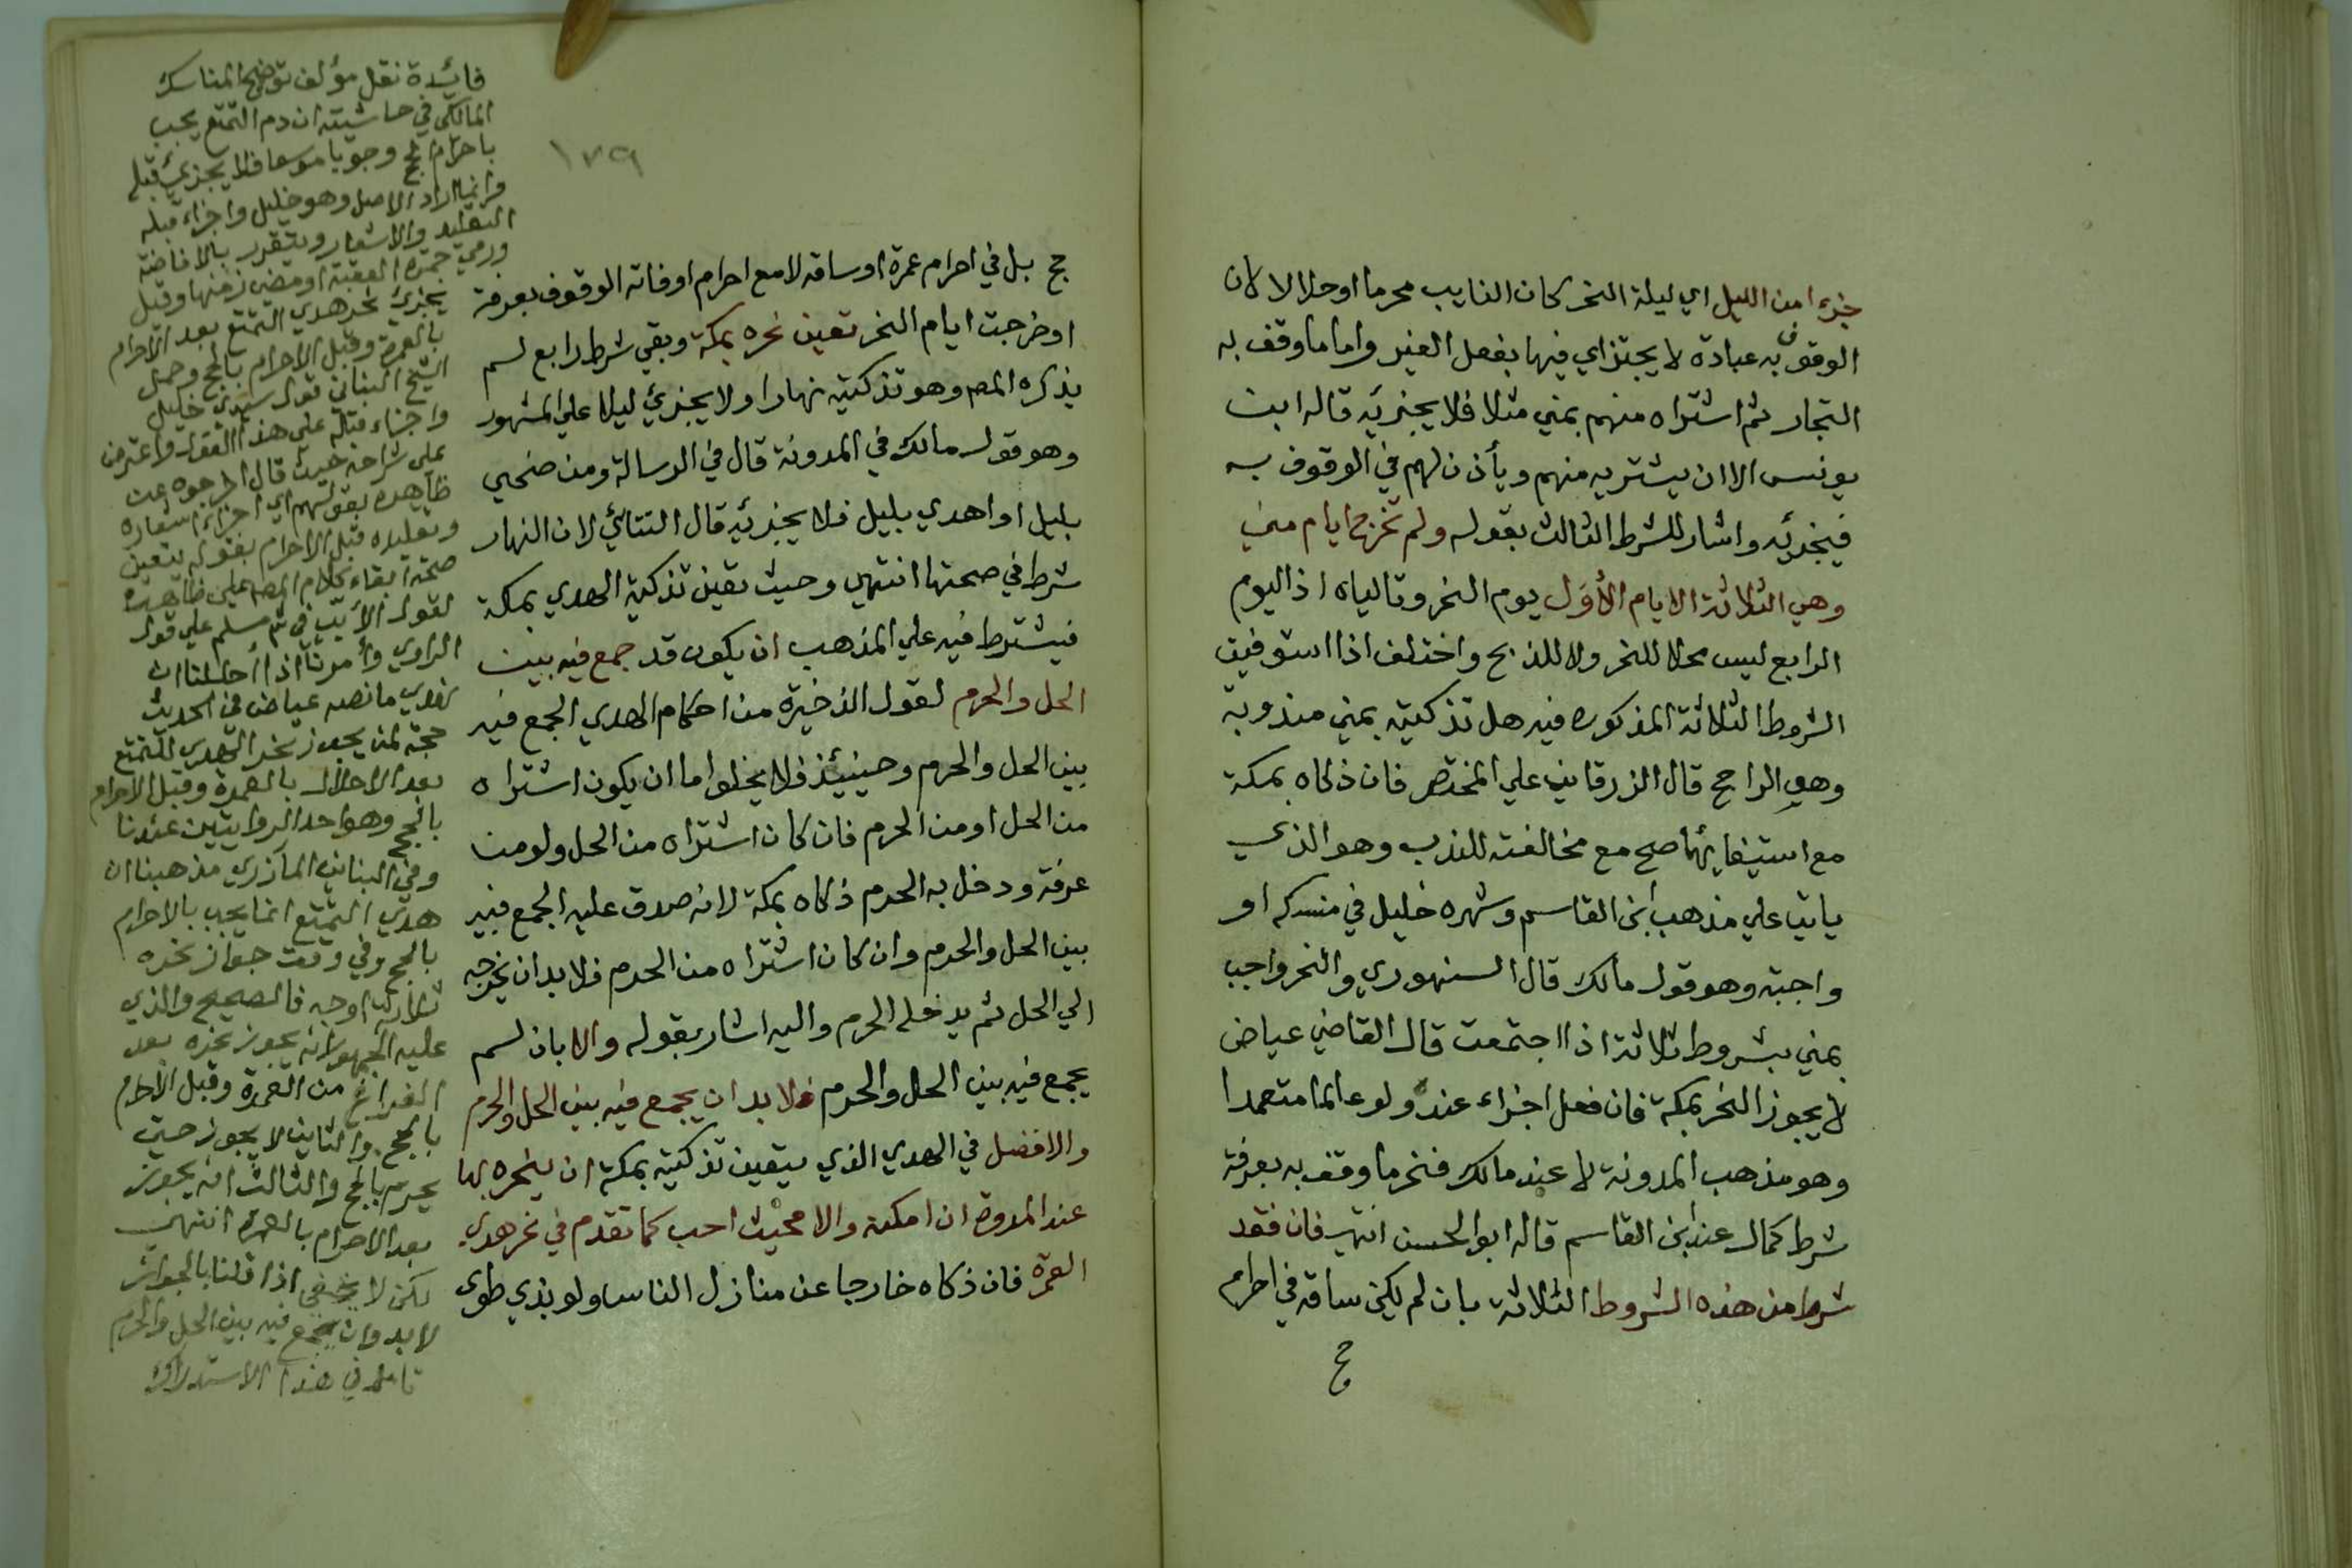 جزءا من الليل اي ليلة النحر كان النايب محرما او حلالا لان
الوقوف به عبادة لا يجتزاي فيها بفعل الغير واما ما وقف به
التجار ثم اشتراه منهم بمني مثلا فلا يجزيه قاله ابن
يونس الا ان يشتريه منهم ويأذن لهم في الوقوف به
فيجزئه واشار للشرط الثالث بقوله ولم تخرج ايام مني
وهي الثلاثة الايام الأول يوم النحر وتالياه اذ اليوم
الرابع ليس محلا للنحر ولا للذبح واختلف اذا استوفيت
الشروط الثلاثة المذكوره فيه هل تذكيته بمني مندوبة
وهو الراجح قال الزرقاني علي المختصر فان ذكاه بمكة
مع استيفايها صح مع مخالفته للندب وهو الذي
ياتي علي مذهب ابن القاسم وشهره خليل في منسكه او
واجبة وهو قول مالك قال السنهوري والنحر واجب
بمني بشروط ثلاثة اذا اجتمعت قال القاضي عياض
لا يجوز النحر بمكة فان فعل اجزاء عنده ولو عالما متعمدا
وهو مذهب المدونة لا عند مالك فنحر ما وقف به بعرفة
شرط كمال عند ابن القاسم قاله ابو الحسن انتهي فان فقد
شرط من هذه الشروط الثلاثة بان لم يكن ساقه في احرام
حج
١٣٩
حج بل في احرام عمرة او ساقه لا مع احرام او فاته الوقوف بعرفة
او خرجت ايام النحر تعين نحره بمكة وبقي شرط رابع لم
يذكره المص وهو تذكيته نهارا ولا يجزئ ليلا علي المشهور
وهو قول مالك في المدونة قال في الرسالة ومن ضحي
بليل او اهدي بليل فلا يجزئه قال التتائي لان النهار
شرط في صحتها انتهي وحيث تعين تذكية الهدي بمكة
فيشترط فيه علي المذهب ان يكون قد جمع فيه بين
الحل والحرم لقول الذخيرة من احكام الهدي الجمع فيه
بين الحل والحرم وحينيئذ فلا يخلوا اما ان يكون اشتراه
من الحل او من الحرم فان كان اشتراه من الحل ولو من
عرفة ودخل به الحرم ذكاه بمكة لانه صدق عليه الجمع فيه
بين الحل والحرم وان كان اشتراه من الحرم فلا بد ان يخرجه
الي الحل ثم يدخله الحرم واليه اشار بقوله والا بان لم
يجمع فيه بين الحل والحرم فلا بد ان يجمع فيه بين الحل والحرم
والافضل في الهدي الذي يتعين تذكيته بمكة ان ينحره بها
عند المروة ان امكنه والا فحيث احب كما تقدم في نحر هدي
العمرة فان ذكاه خارجا عن منازل الناس ولو بذي طوى
فائدة نقل مؤلف توضيح المناسك
المالكي في حاشيته ان دم التمتع يجب
باحرام الحج وجوبا موسعا فلا يجزئ قبله
وانما اراد الاصل وهو خليل واجزاء قبله
التقليد والاشعار ويتقرر بالافاضة
ورمي جمرة العقبة او مضي زمنها وقيل
يجزئ نحر هدي التمتع بعد الاحرام
بالعمرة وقبل الاحرام بالحج وحمل
الشيخ البناني قول سيدي خليل
واجزاء قبله على هذا القول واعترض
على شراحه حيث قال اخرجوه عن
ظاهره بقولهم اي اجزاء اشعاره
وتقليده قبل الاحرام بقوله يتعين
صحة ابقاء كلام المص على ظاهره
لقول الأبي في شم مسلم علي قول
الراوي وأمرنا اذا أحللنا ان
نهدي ما نصه عياض في الحديث
حجة لمن يجوز نحر الهدي للتمتع
بعد الاحلال بالعمرة وقبل الاحرام
بالحج وهو احد الروايتين عندنا
وفي البناني المازري مذهبنا ان
هدي التمتع انما يجب بالاحرام
بالحج وفي وقت جواز نحره
ثلاثة اوجه فالصحيح والذي
عليه الجمهور انه يجوز نحره بعد
الفراغ من العمرة وقبل الاحرام
بالحج والثاني لا يجوز حتى
يحرم بالحج والثالث انه يجوز
بعد الاحرام بالعمرة انتهى
لكن لا يخفى اذا قلنا بالجواز
لا بد وان يجمع فيه بين الحل والحرم
تامل في هذا الاستدلال